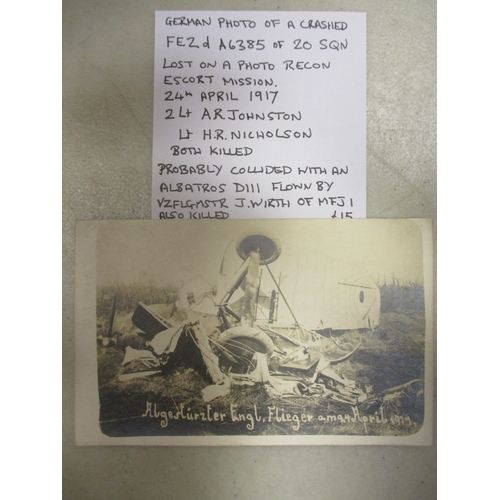 GERMAN PHOTO OF A CRASHED
FE2d A6385 OF 20 SQN
LOST ON A PHOTO RECON
ESCORT MISSION.
24th APRIL 1917
2 Lt A.R. JOHNSTON
Lt H.R. NICHOLSON
BOTH KILLED
PROBABLY COLLIDED WITH AN
ALBATROS DIII FLOWN BY
VZFLGMSTR J. WIRTH OF MFJ 1
ALSO KILLED £15
Abgestürzter Engl. Flieger am 24 April 1917.